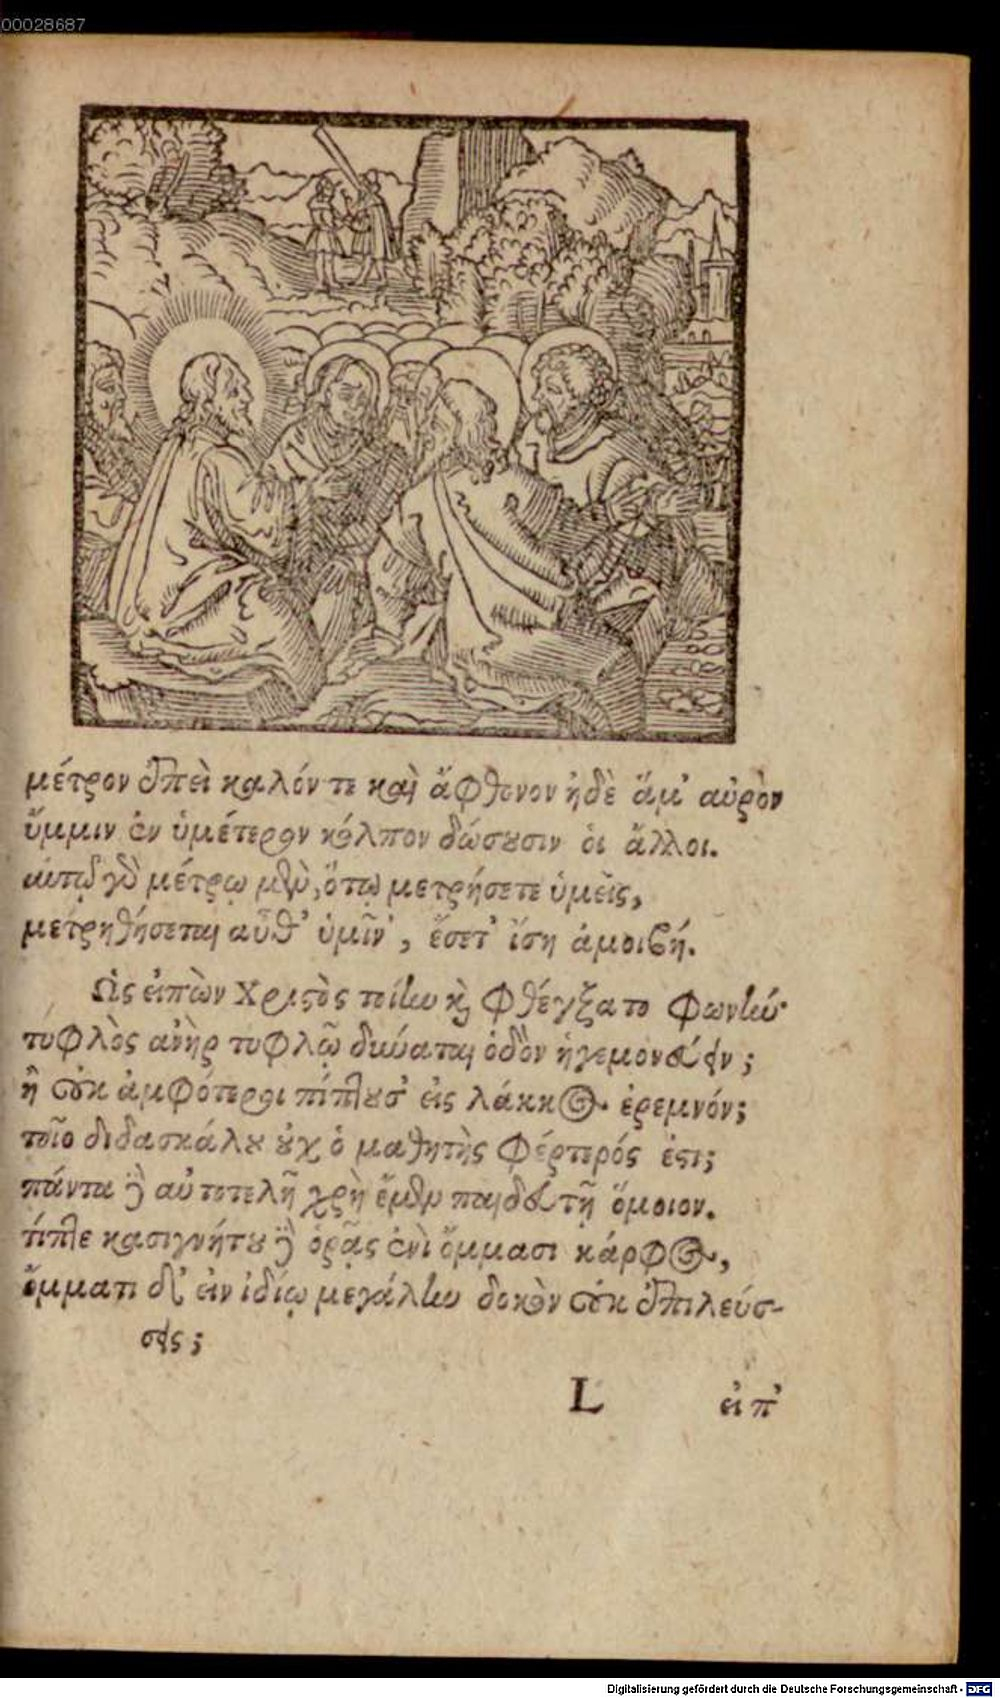 00028687
μέτρον ἐπεὶ καλόν τε καὶ ἄφθονον ἠδὲ ἅμ' αὐρὸν
ὔμμιν ἐν ὑμέτερον κόλπον δώσουσιν οἱ ἄλλοι.
αὐτῷ γὸ μέτρῳ μὲν, ὅτῳ μετρήσετε ὑμεῖς,
μετρηθήσεται αὖθ' ὑμῖν, ἔσετ' ἴση ἀμοιβή.
Ὡς εἰπὼν Χριστὸς τοίην καὶ φθέγξατο φωνήν·
τυφλὸς ἀνὴρ τυφλῷ δύναται ὁδὸν ἡγεμονεύειν;
ἢ οὐκ ἀμφότεροι πίπτουσ' εἰς λάκκος ἐρεμνόν;
τοῖο διδασκάλου οὐχ ὁ μαθητὴς φέρτερός ἐστι;
πάντα δὲ αὐτοτελῆ χρὴ ἔμεν παιδευτῇ ὅμοιον.
τίπτε κασιγνήτου δὲ ὁρᾷς ἐνὶ ὄμμασι κάρφος,
ὄμματι δ' εἰν ἰδίῳ μεγάλην δοκὸν οὐκ ἐπιλεύσ-
σεις;
L εἰπ'
Digitalisierung gefördert durch die Deutsche Forschungsgemeinschaft - DFG